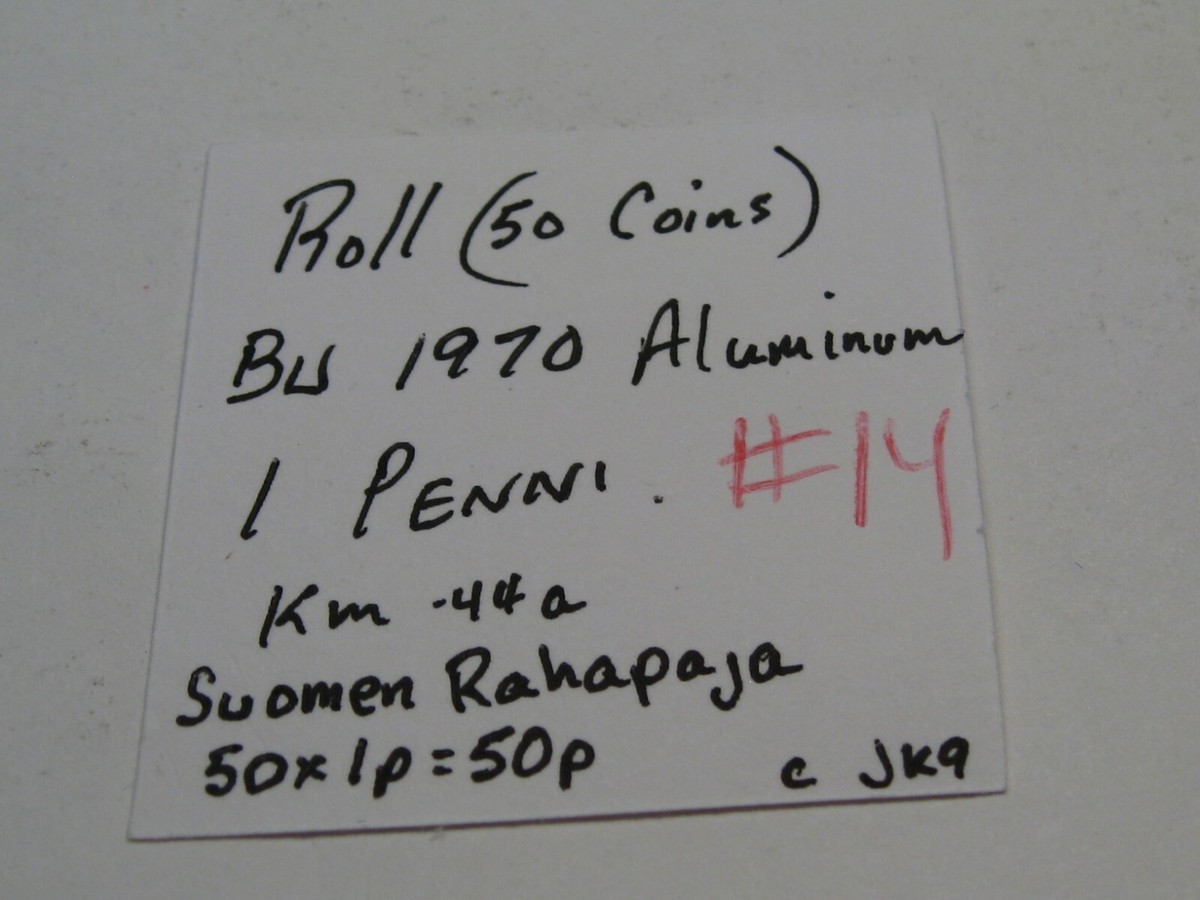 Roll (50 Coins)
BU 1970 Aluminum
1 PENNI. #14
Km -44a
Suomen Rahapaja
50x1p=50p c JK9